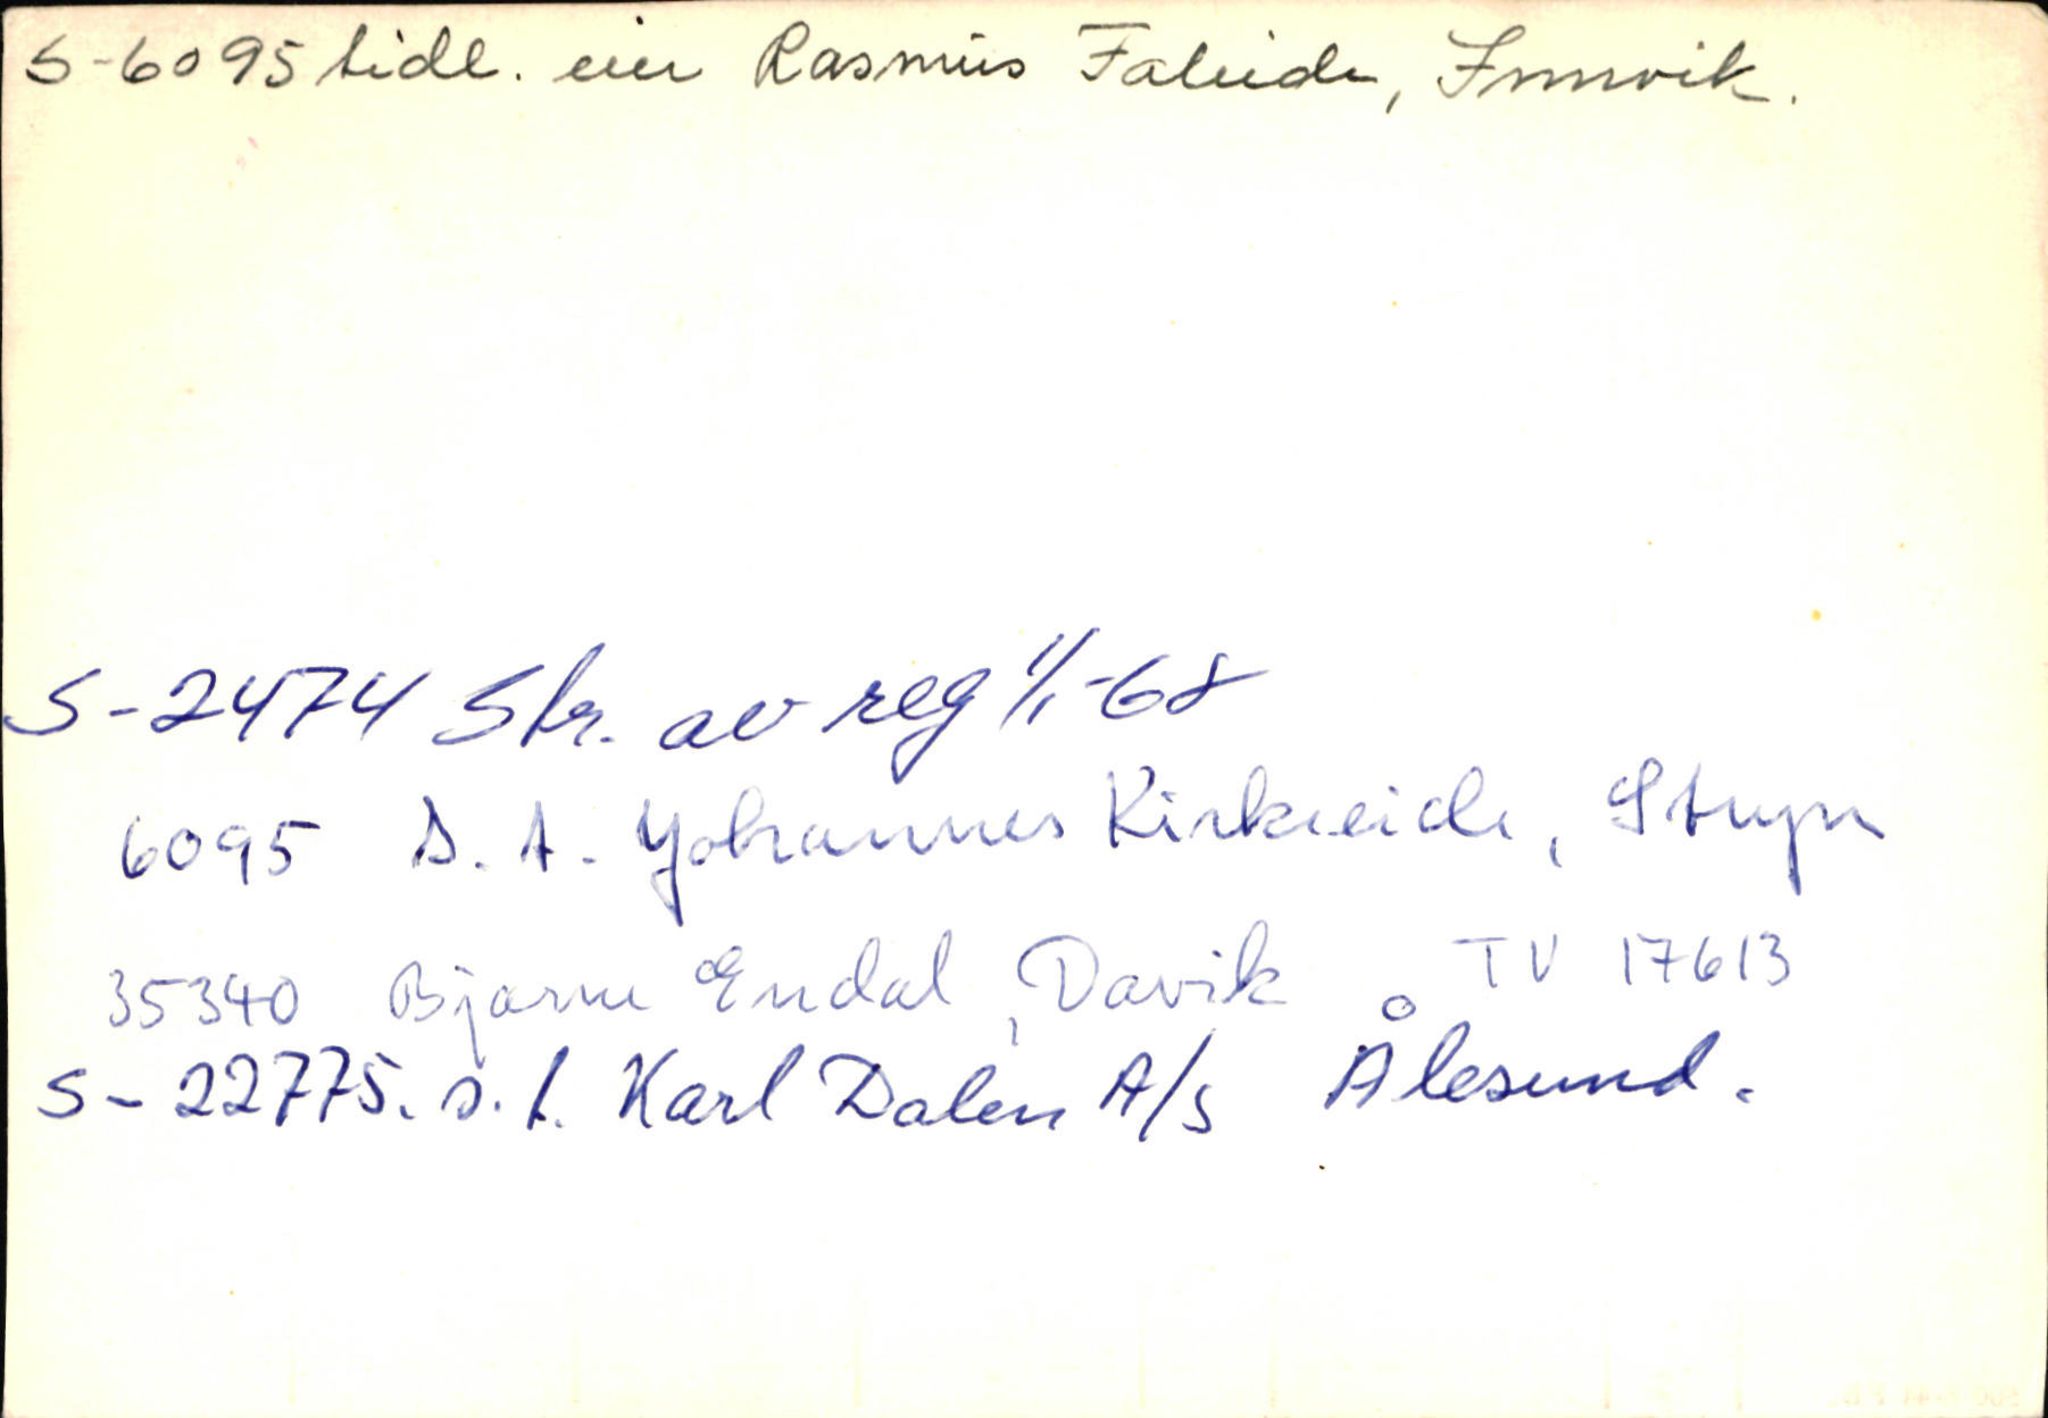 S-6095 tidl. eier Rasmus Faleide, Innvik.
S-2474 Str. av reg 1/1-68
6095 S. t. Johannes Kirkeeide, Stryn
35340 Bjarne Endal, Davik TV 17613
S-22775. s. t. Karl Dalen A/S Ålesund.